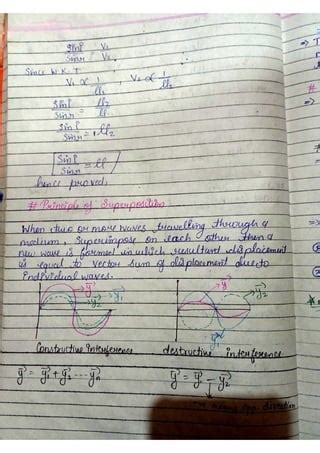 Sin i = V1
Sin r   V2
Since W.K.T
V1 ∝ 1/μ1 , V2 ∝ 1/μ2
Sin i = μ2
Sin r   μ1
Sin i = 1μ2
Sin r
Sin i = μ
Sin r
hence proved.
# Principle of Superposition
When two or more waves travelling through a
medium, Superimpose on each other then a
new wave is formed in which resultant displacement
is equal to vector sum of displacement due to
individual waves.
y
y1
y2
Constructive interference
destructive interference
y = y1 + y2 ---- yn
y = y - y2
means opp. direction